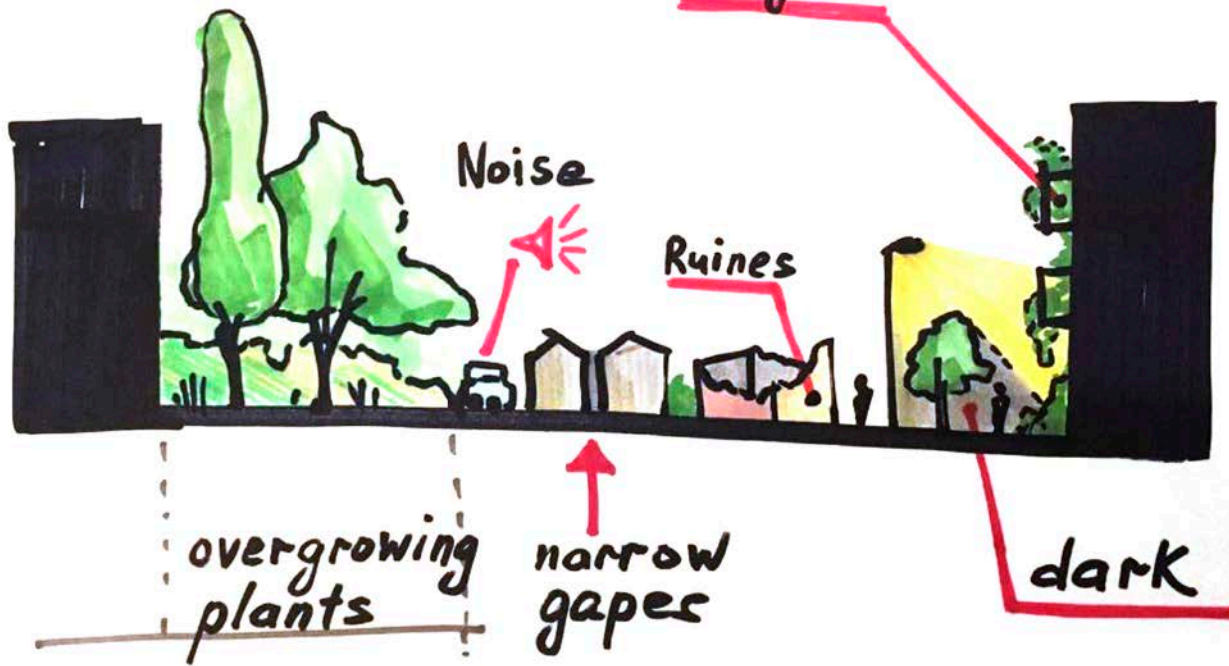 Noise
Ruines
overgrowing
plants
narrow
gapes
dark